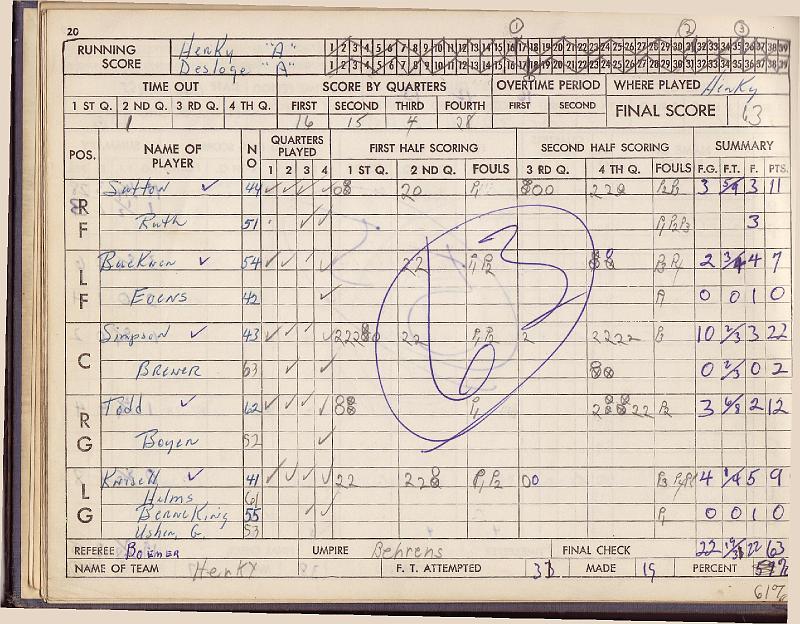 20
1 2 3
RUNNING SCORE Henky "A" 1 2 3 4 5 6 7 8 9 10 11 12 13 14 15 16 17 18 19 20 21 22 23 24 25 26 27 28 29 30 31 32 33 34 35 36 37 38 39
Desloge "A" 1 2 3 4 5 6 7 8 9 10 11 12 13 14 15 16 17 18 19 20 21 22 23 24 25 26 27 28 29 30 31 32 33 34 35 36 37 38 39
TIME OUT SCORE BY QUARTERS OVERTIME PERIOD WHERE PLAYED Henky
1 ST Q. 2 ND Q. 3 RD Q. 4 TH Q. FIRST SECOND THIRD FOURTH FIRST SECOND FINAL SCORE 63
1 16 15 4 28
POS. NAME OF PLAYER NO QUARTERS PLAYED FIRST HALF SCORING SECOND HALF SCORING SUMMARY
1 2 3 4 1 ST Q. 2 ND Q. FOULS 3 RD Q. 4 TH Q. FOULS F.G. F.T. F. PTS.
RF Sutton ✓ 44 20 P1 P2 P3 3 5/9 3 11
Ruth 51 P1 P2 P3 3
LF ✓ 54 22 P1 P2 2 3/4 4 7
Evens 42 P1 0 0 1 0
C Simpson ✓ 43 22 P1 P2 2 2222 10 2/3 3 22
Brewer 63 0 2/3 0 2
RG Todd ✓ 62 P1 P2 3 6/8 2 12
Boyen 52
LG ✓ 41 22 P1 P2 00 4 1/4 5 9
Helms 61
55 P1 0 0 1 0
Usher, G. 53
63
REFEREE Boemer UMPIRE Behrens FINAL CHECK 22 19/31 22 63
NAME OF TEAM Henky F. T. ATTEMPTED 31 MADE 19 PERCENT
61%